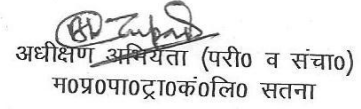 अधीक्षण अभियंता (परी० व संचा०)
म०प्र०पा०ट्रा०कं०लि० सतना